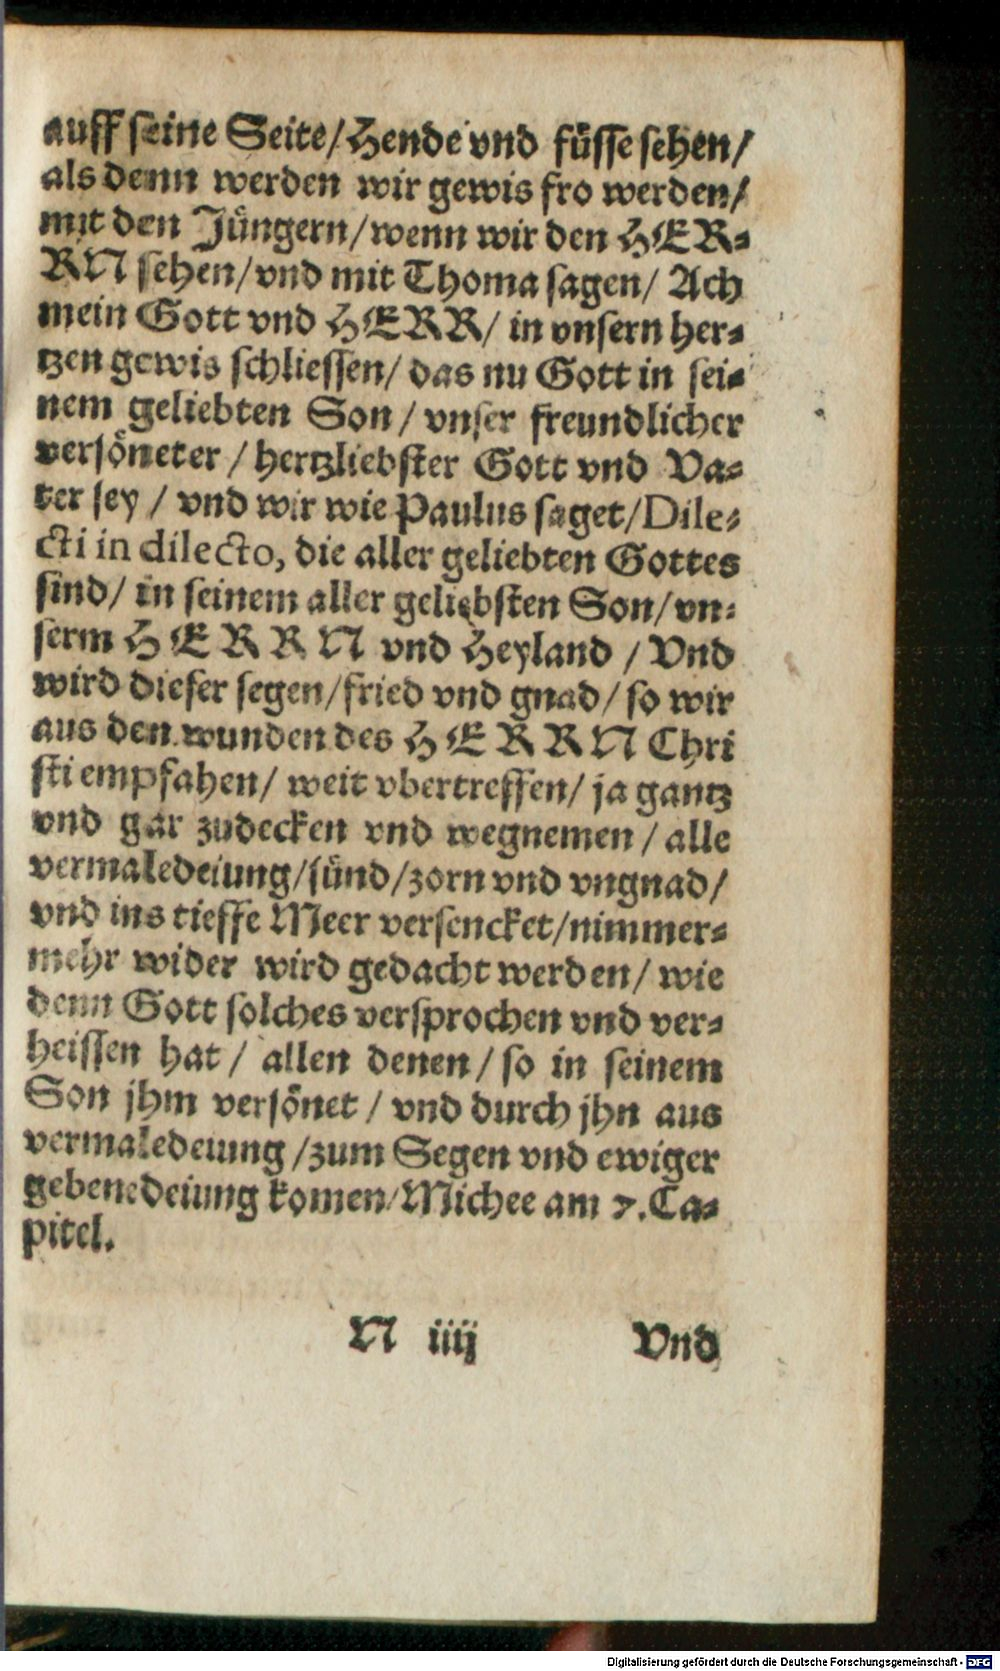 auff seine Seite/ Hende vnd füsse sehen/
als denn werden wir gewis fro werden/
mit den Jüngern/ wenn wir den HER⸗
RN sehen/ vnd mit Thoma sagen/ Ach
mein Gott vnd HERR/ in vnsern her⸗
tzen gewis schliessen/ das nu Gott in sei⸗
nem geliebten Son/ vnser freundlicher
versöneter/ hertzliebster Gott vnd Va⸗
ter sey/ vnd wir wie Paulus saget/ Dile⸗
cti in dilecto, die aller geliebten Gottes
sind/ in seinem aller geliebsten Son/ vn⸗
serm HERRN vnd Heyland/ Vnd
wird dieser segen/ fried vnd gnad/ so wir
aus den wunden des HERRN Chri
sti empfahen/ weit vbertreffen/ ja gantz
vnd gar zudecken vnd wegnemen/ alle
vermaledeiung/ sünd/ zorn vnd vngnad/
vnd ins tieffe Meer versencket/ nimmer⸗
mehr wider wird gedacht werden/ wie
denn Gott solches versprochen vnd ver⸗
heissen hat/ allen denen/ so in seinem
Son jhm versönet/ vnd durch jhn aus
vermaledeiung/ zum Segen vnd ewiger
gebenedeiung komen/ Michee am 7. Ca⸗
pitel.
N iiij Vnd
Digitalisierung gefördert durch die Deutsche Forschungsgemeinschaft - DFG